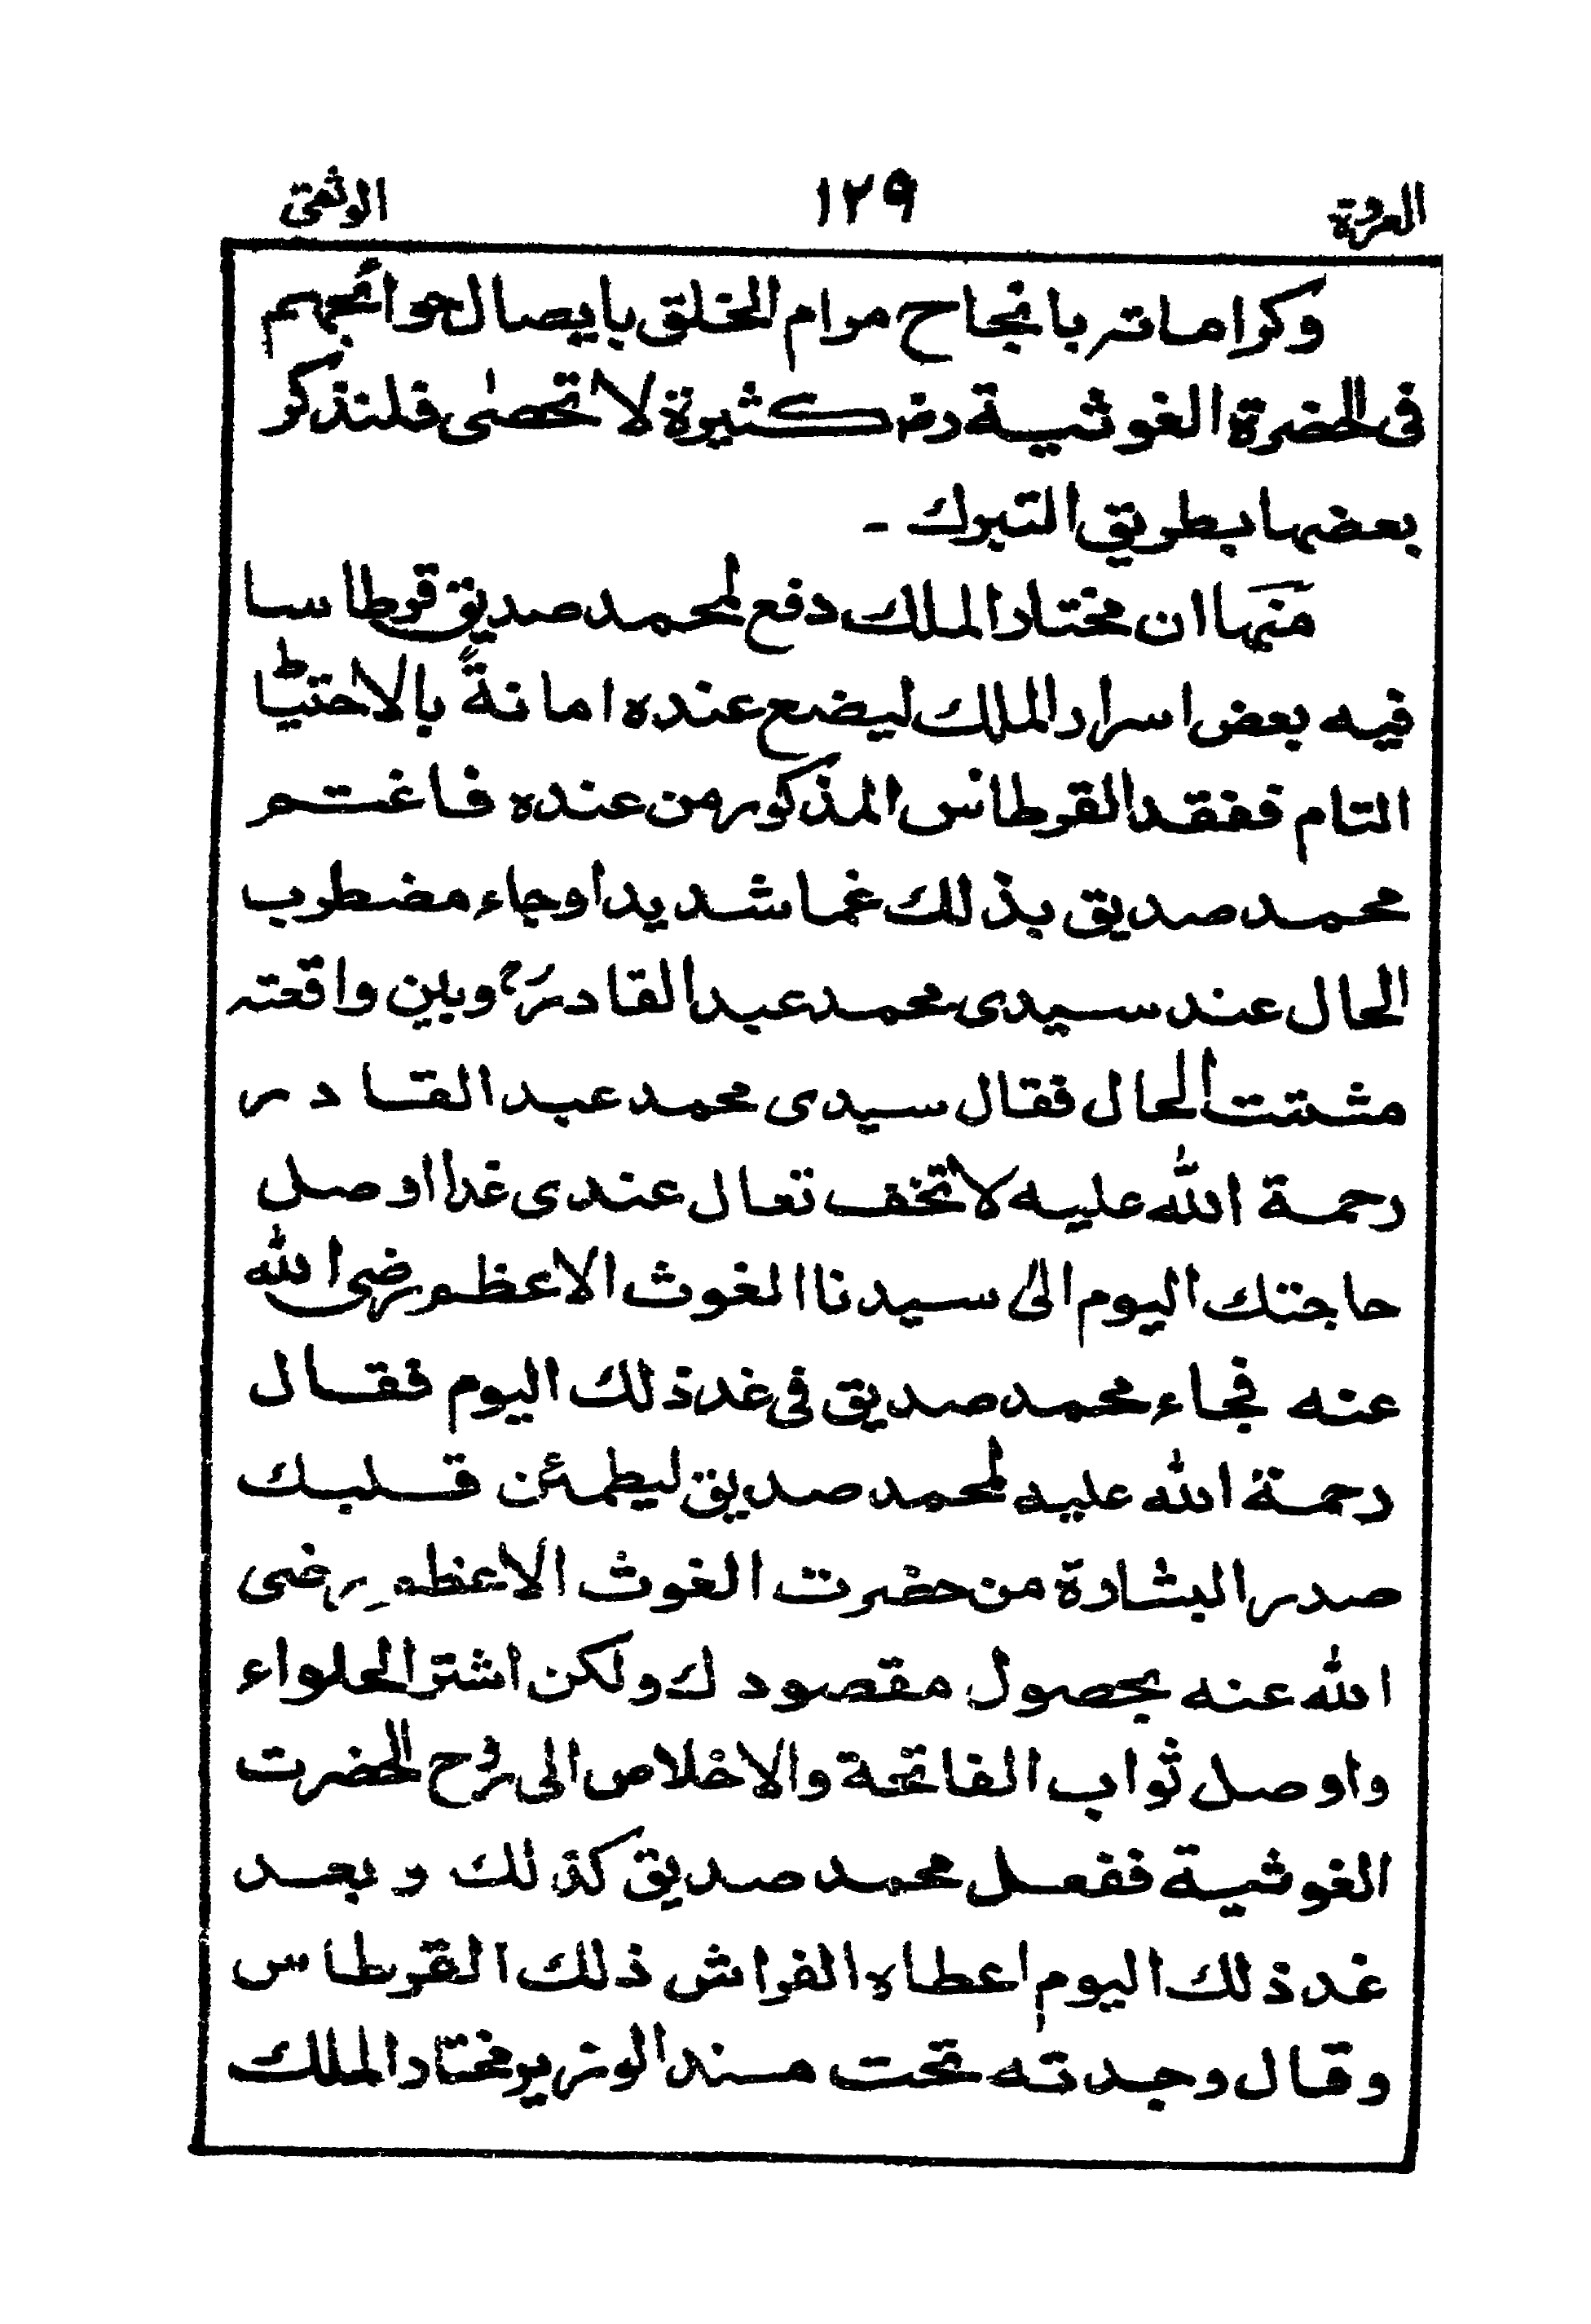 العروة ١٢٩ الوثقى
وكراماته بانجاح مرام الخلق بايصال حوائجهم
فى الحضرة الغوثية رض كثيرة لا تحصى فلنذكر
بعضها بطريق التبرك -
منها ان مختار الملك دفع لمحمد صديق قرطاسا
فيه بعض اسرار الملك ليضع عنده امانةً بالاحتياط
التام ففقد القرطاس المذكور من عنده فاغتم
محمد صديق بذلك غما شديدا وجاء مضطرب
الحال عند سيدى محمد عبد القادر رح وبين واقعته
مشتت الحال فقال سيدى محمد عبد القادر
رحمة الله عليه لا تخف تعال عندى غدا اوصل
حاجتك اليوم الى سيدنا الغوث الاعظم رضى الله
عنه فجاء محمد صديق فى غد ذلك اليوم فقال
رحمة الله عليه لمحمد صديق ليطمئن قلبك
صدر البشارة من حضرت الغوث الاعظم رضى
الله عنه بحصول مقصودك ولكن اشتر الحلواء
واوصل ثواب الفاتحة والاخلاص الى روح الحضرت
الغوثية ففعل محمد صديق كذلك وبعد
غد ذلك اليوم اعطاه الفراش ذلك القرطاس
وقال وجدته تحت مسند الوزير مختار الملك